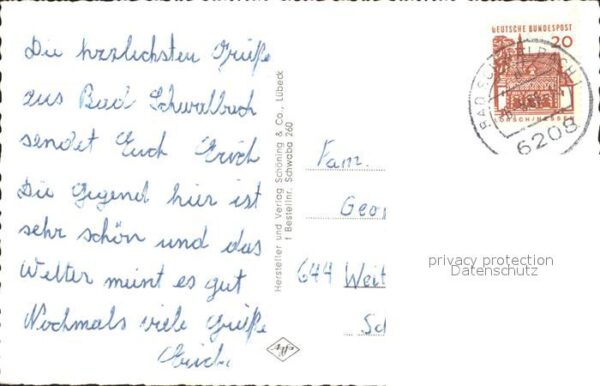 Die herzlichsten Grüße
aus Bad Schwalbach
sendet Euch Erich
Die Gegend hier ist
sehr schön und das
Wetter meint es gut
Nochmals viele Grüße
Erich.
Hersteller und Verlag Schöning & Co., Lübeck
f Bestellnr. Schwaba 260
DEUTSCHE BUNDESPOST
20
LORSCH/HESSEN
BAD SCHWALBACH
6208
Fam.
Geor
644 Weit
Sc
privacy protection
Datenschutz